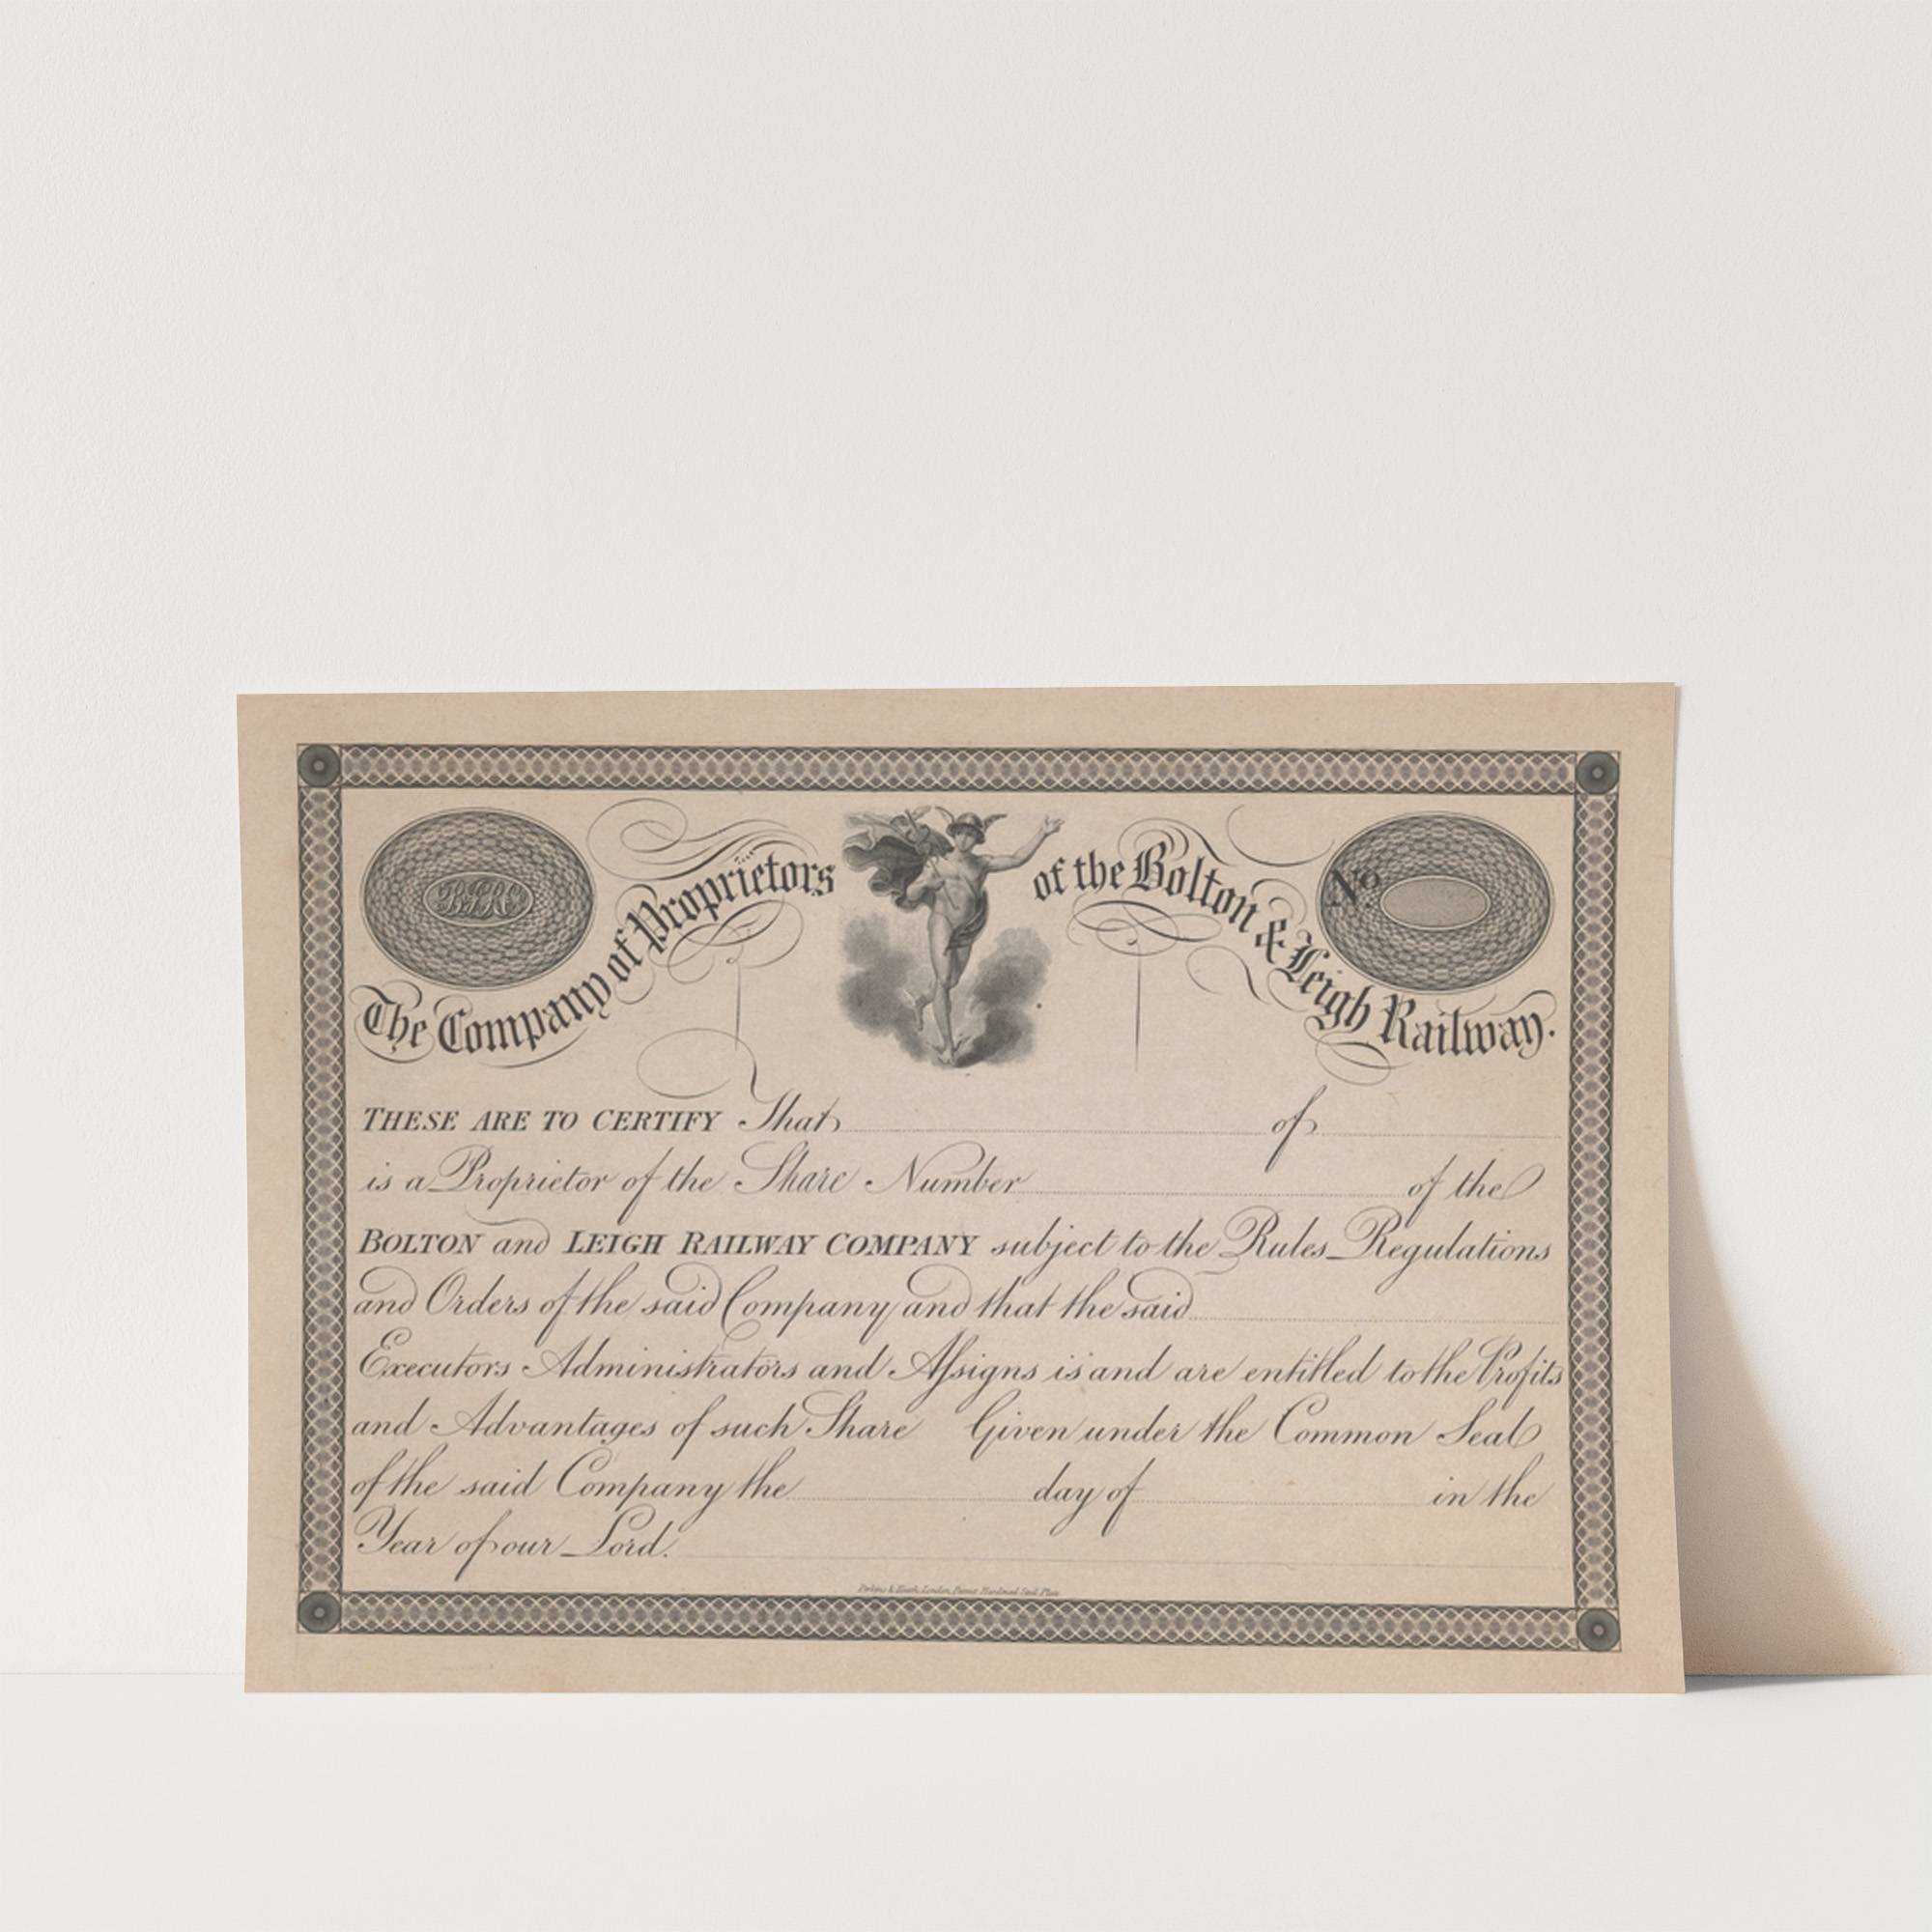 BLRC
The Company of Proprietors of the Bolton & Leigh Railway.
No.
THESE ARE TO CERTIFY That of
is a Proprietor of the Share Number of the
BOLTON and LEIGH RAILWAY COMPANY subject to the Rules Regulations
and Orders of the said Company and that the said
Executors Administrators and Aſsigns is and are entitled to the Profits
and Advantages of such Share Given under the Common Seal
of the said Company the day of in the
Year of our Lord.
Perkins & Heath, London, Patent Hardened Steel Plate